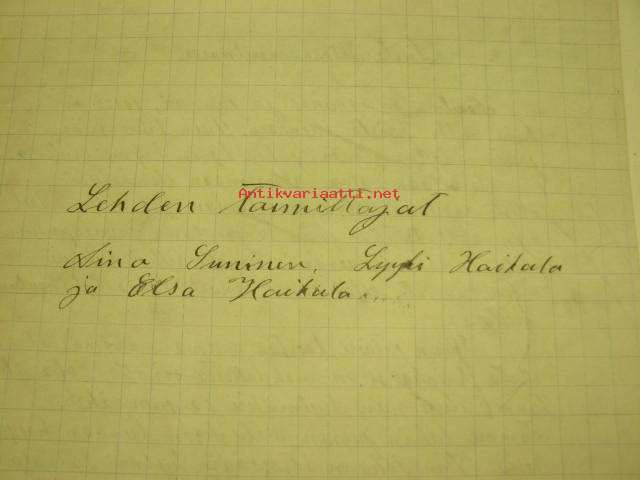 Antikvariaatti.net
Lehden Toimittajat
Sina Suninen, Lyyli Haikala
ja Elsa Haikala...